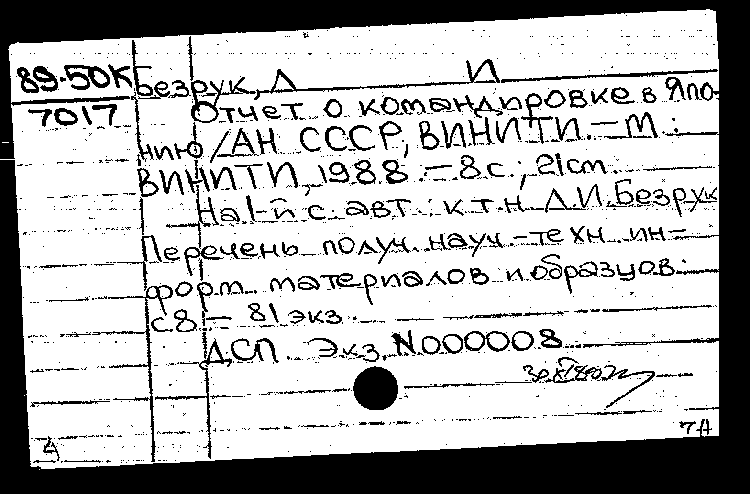 89-50К Безрук, Л И
7017 Отчет о командировке в Япо-
нию /АН СССР, ВИНИТИ. – М.:
ВИНИТИ, 1988. – 8 с.; 21 см.
На 1-й с. авт.: к.т.н Л.И. Безрук
Перечень получ. науч.-техн. ин-
форм. материалов и образцов:
с 8 – 81 экз.
ДСП. Экз. N000008
4 7А